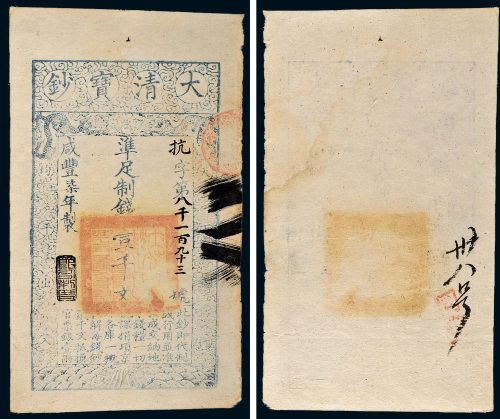 大清寶鈔
抗字第八千一百九十三號
準足制錢 千文
咸豐柒年製
此鈔即代制
錢行用並准
按成交納地
丁錢糧一切
稅課捐項京
外各庫一概
收解每錢鈔
貳千文抵換
官票銀壹兩
卅八号